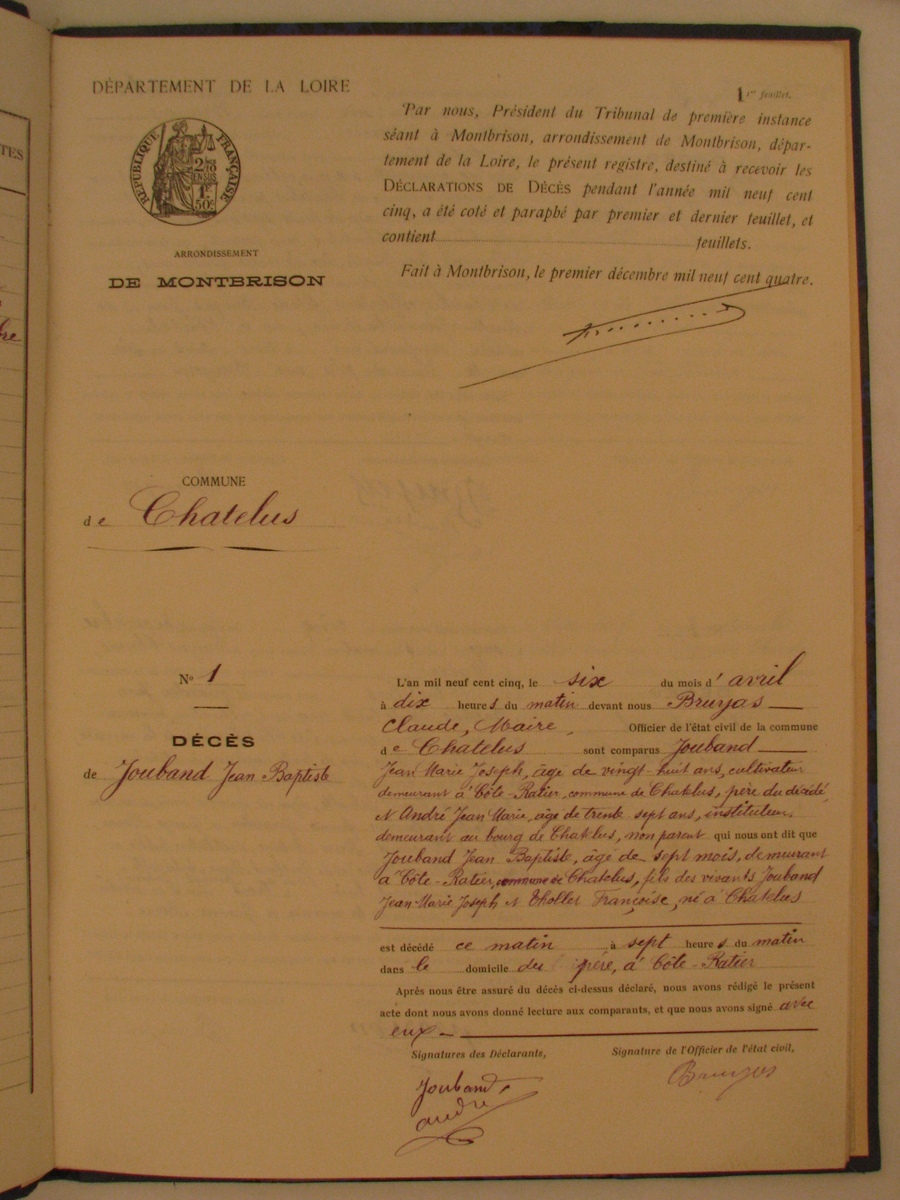 TES
bre
DÉPARTEMENT DE LA LOIRE
1 1er feuillet.
RÉPUBLIQUE FRANÇAISE
2/10
EN SUS
1F.
50c
ARRONDISSEMENT
DE MONTBRISON
Par nous, Président du Tribunal de première instance
séant à Montbrison, arrondissement de Montbrison, dépar-
tement de la Loire, le présent registre, destiné à recevoir les
DÉCLARATIONS DE DÉCÈS pendant l'année mil neuf cent
cinq, a été coté et paraphé par premier et dernier feuillet, et
contient feuillets.
Fait à Montbrison, le premier décembre mil neuf cent quatre.
COMMUNE
de Chatelus
No 1
DÉCÈS
de Jouband Jean Baptiste
L'an mil neuf cent cinq, le six du mois d'avril
à dix heures du matin devant nous Bruyas
Claude, Maire, Officier de l'état civil de la commune
de Chatelus sont comparus Jouband
Jean Marie Joseph, âge de vingt-huit ans, cultivateur
demeurant à Côte-Ratier, commune de Chatelus, père du décédé,
et André Jean Marie, âge de trente sept ans, instituteur,
demeurant au bourg de Chatelus, non parent qui nous ont dit que
Jouband Jean Baptiste, âgé de sept mois, demeurant
à Côte-Ratier, commune de Chatelus, fils des vivants Jouband
Jean-Marie Joseph et Thollet Françoise, né à Chatelus
est décédé ce matin à sept heures du matin
dans le domicile du père, à Côte-Ratier
Après nous être assuré du décès ci-dessus déclaré, nous avons rédigé le présent
acte dont nous avons donné lecture aux comparants, et que nous avons signé avec
eux
Signatures des Déclarants,
Signature de l'Officier de l'état civil,
Jouband
andré
Bruyas